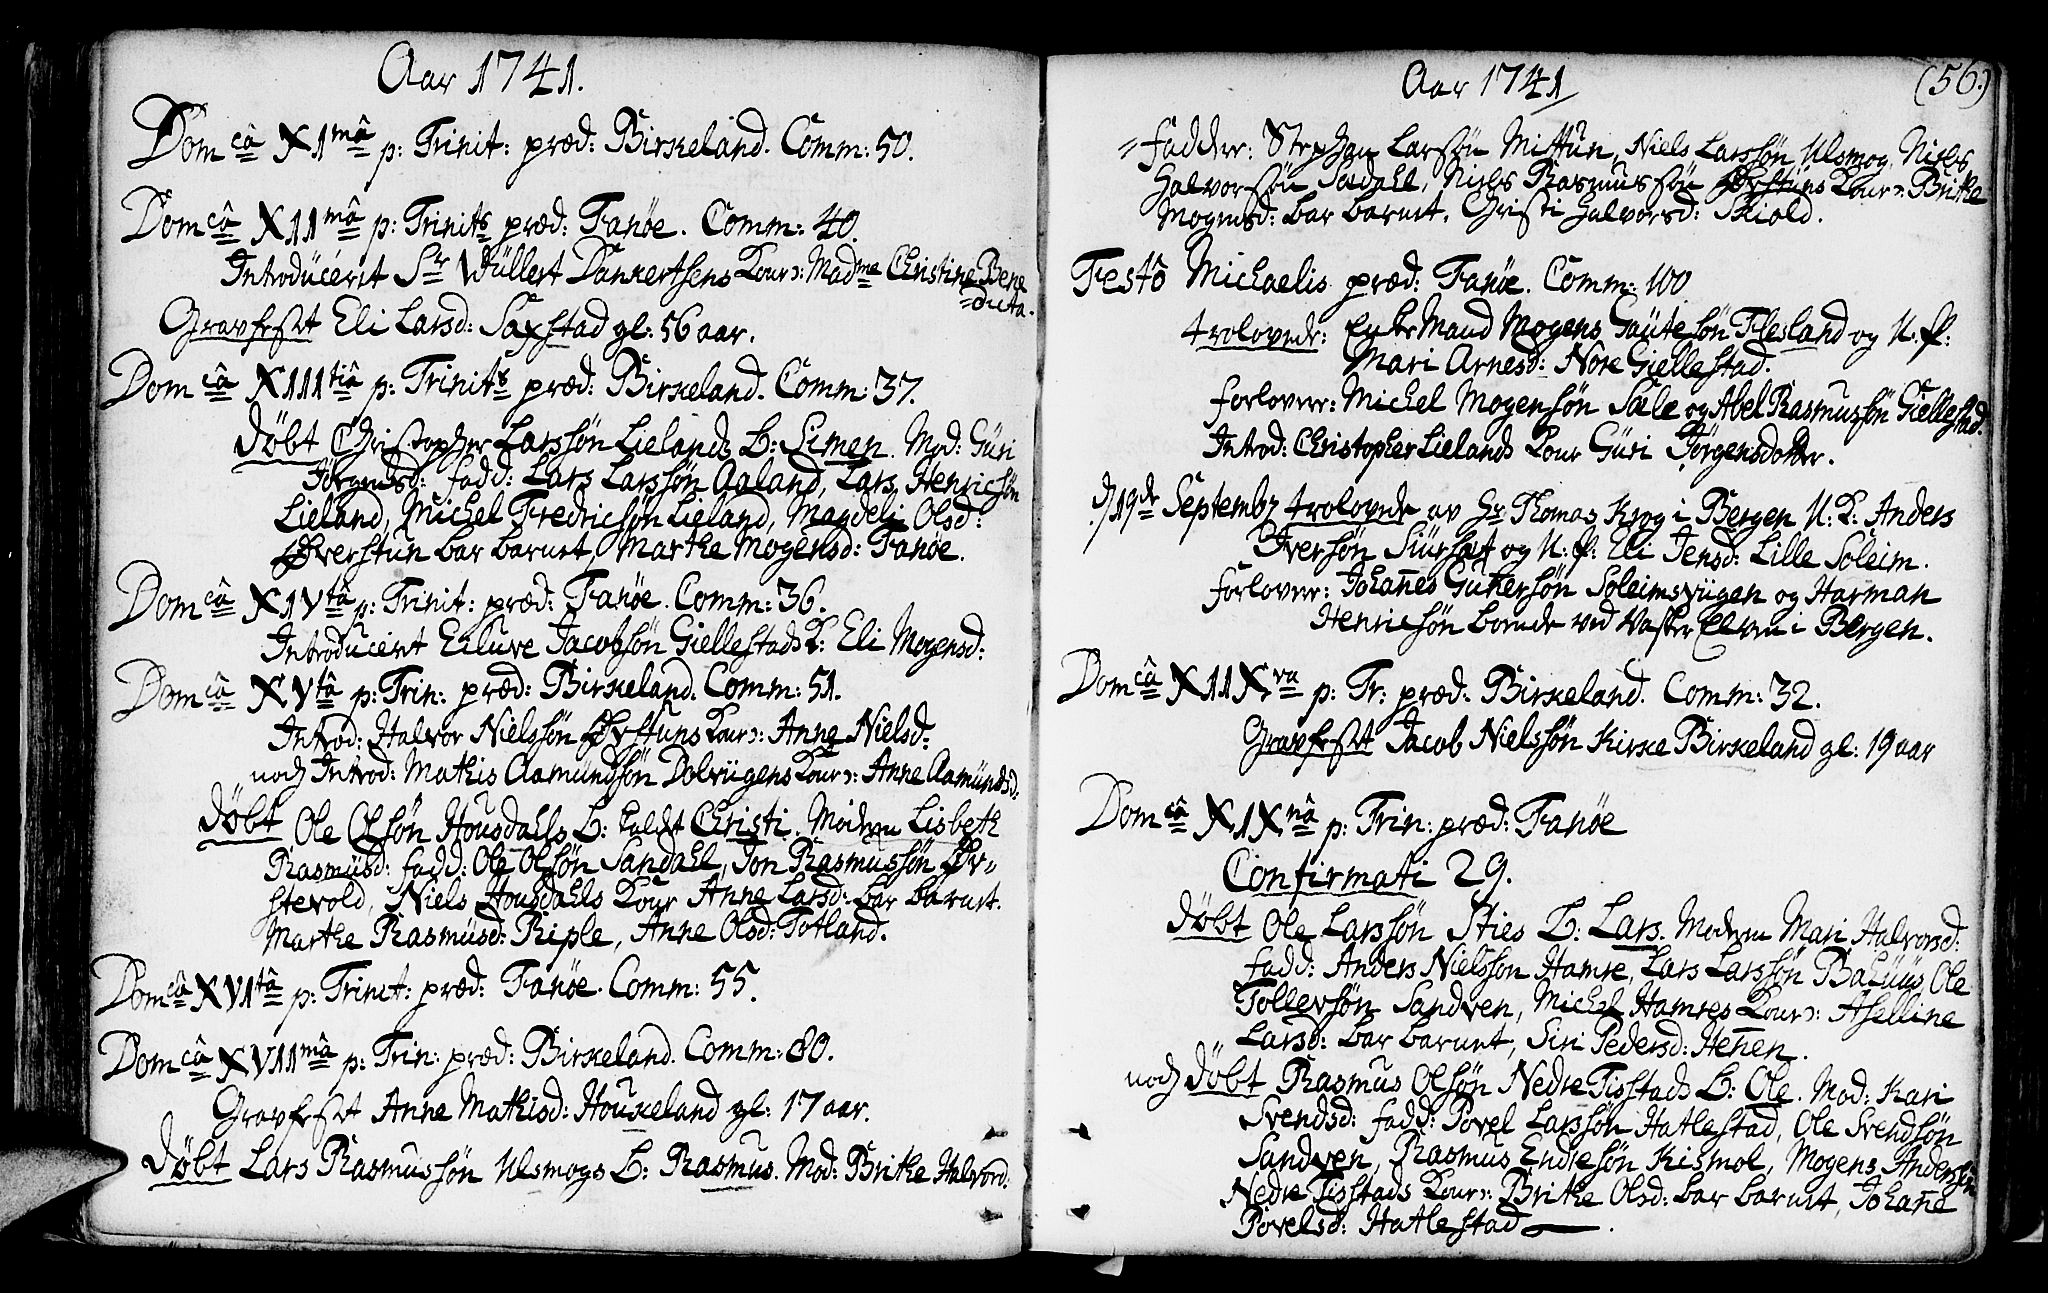 Aar 1741.
Dom câ XI mâ p: Trinit: præd: Birkeland. Comm: 50.
Dom câ XII mâ p: Trinits præd: Fanøe. Comm: 40.
Introduceret Sr Wüllert Dankertsens Kone: Madme Christine Bene
=dicta.
Gravfæstet Eli Larsd: Saxstad gl: 56 aar.
Dom câ XIII tiâ p: Trinits præd: Birkeland. Comm: 37.
Døbt Christopher Larssøn Lielands B: Simen. Mod: Güri
Jørgensd: fadd: Lars Larssøn Aaland, Lars Henricsøn
Lieland, Michel Fredricsøn Lieland, Magdeli Olsd:
Øverstun bar barnet, Marthe Mogensd: Fanøe.
Dom câ XIV tâ p: Trinit: præd: Fanøe. Comm: 36.
Introduceret Eiluve Jacobsøn Giellestads K: Eli Mogensd:
Dom câ XV tâ p: Trin: præd: Birkeland. Comm: 51.
Introd: Halvor Nielssøn Øvstuns Kone: Anne Nielsd:
noch Introd: Mathis Aamundsøn Dolviigens Kone: Anne Aamundsd:
Døbt Ole Olsøn Housdahls B: kaldt Christi. Moderen Lisbeth
Rasmüsd: fadd: Ole Olsøn Sandahl, Jon Rasmussøn Øv=
stevold, Niels Housdahls Kone Anne Larsd: bar barnet.
Marthe Rasmüsd: Riple, Anne Olsd: Totland.
Dom câ XVI tâ p: Trinit: præd: Fanøe. Comm: 55.
Dom câ XVII mâ p: Trin: præd: Birkeland. Comm: 80.
Gravfæstet Anne Mathisd: Houkeland gl: 17 aar.
Døbt Lars Rasmussøn Ulsmogs B: Rasmus. Mod: Brithe Halvord:
Aar 1741
(56.)
=Faddere: Stephan Larsøn Mittun, Niels Larssøn Ulsmog, Niels
Halvorsøn Sædahl, Niels Rasmussøn Øvstuns Kone: Brithe
Mogensd: bar barnet, Christi Halvorsd: Skiold.
Festô Michaelis præd: Fanøe. Comm: 100
trolovede: Enke Mand Mogens Gautesøn Flesland og U. P:
Mari Arnesd: Nore Giellestad.
forlovere: Michel Mogensøn Sæle og Abel Rasmussøn Giellestad.
Introd: Christopher Lielands Kone Güri Jørgensdotter.
d 19de Septembr trolovede av Hr Thomas Krog i Bergen U: K: Anders
Iversøn Siürsæt og U: P: Eli Jensd: Lille Soleim.
forlovere: Johannes Gutersøn Soleimsviigen og Harman
Henricsøn boende ved Vasker Elven i Bergen.
Dom câ XIIX va p: Tr: præd: Birkeland. Comm: 32.
Gravfæstet Jacob Nielssøn Kirke Birkeland gl: 19 aar
Dom câ XIX nâ p: Trin: præd: Fanøe
Confirmati 29.
Døbt Ole Larssøn Sties B: Lars. Moderen Mari Halvorsd:
fadd: Anders Nielsson Hamre, Lars Larssøn Bahüüs, Ole
Tollevsøn Sandven, Michel Hamres Kone: Aselline
Larsd: bar barnet, Siri Pedersd: Hennen.
noch Døbt Rasmus Olsøn Nedre Tistads B: Ole. Mod: Kari
Svendsd: fadd: Povel Larssøn Hatlestad, Ole Svendsøn
Sandven, Rasmus Endresøn Kismol, Mogens Andersøn
Nedre Tistads Kone: Brithe Olsd: bar barnet, Johanne
Povelsd: Hatlestad.